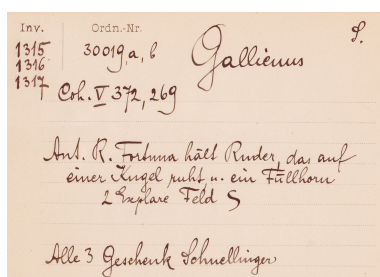 Inv. Ordn.-Nr. S.
1315 30019, a, b Gallienus
1316
1317 Coh. V 372, 269
Ant. R. Fortuna hält Ruder, das auf
einer Kugel ruht u. ein Füllhorn
2 Explare Feld S
Alle 3 Geschenk Schnellinger